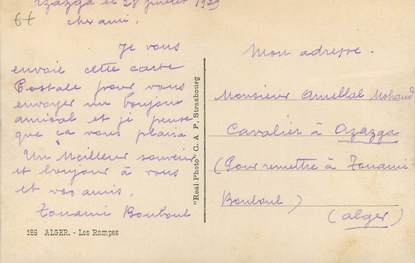 Azazga le 28 juillet 1929
6f
cher ami.
Je vous
envoie cette carte
Postale pour vous
envoyer un bonjour
amical et je pense
que ça vous plaira
Un Meilleur souvenir
et bonjour à vous
et vos amis.
Zouaoui Bouboul
189 ALGER. - Les Rampes
"Real Photo" C. A. P. Strasbourg
Mon adresse.
Monsieur Amellal Mohand
Cavalier à Azazga
(Pour remettre à Zouaoui
Bouboul)
(alger)